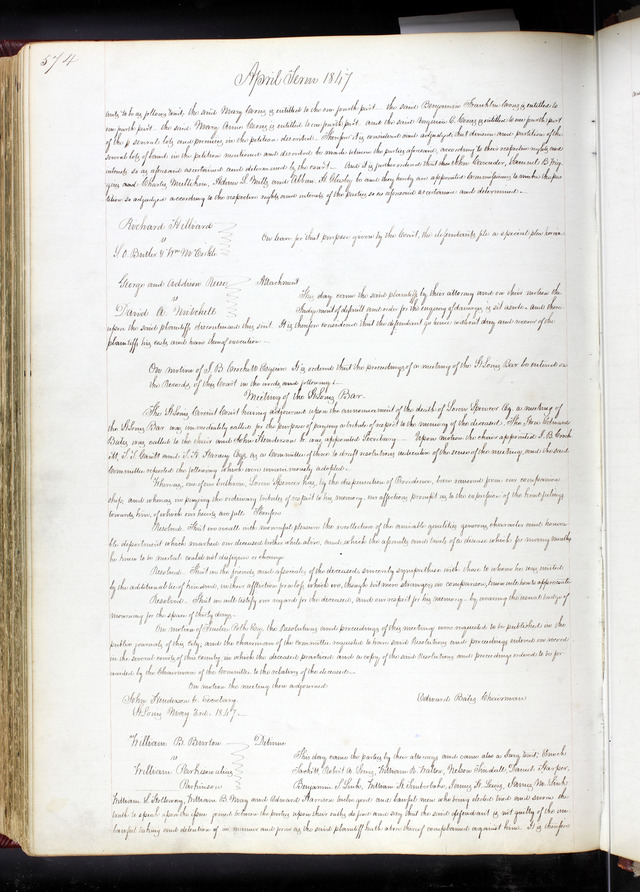 574
April Term 1847
 the said Mary is entitled to the one fourth part the said Benjamin Franklin is entitled to
one fourth part the said Mary Ann is entitled to one fourth part and the said Virginia C. is entitled to one fourth part
of the several lots and premises in the petition described. Therefore it is considered and adjudged that division and partition of the
several lots of land in the petition mentioned and described be made between the parties aforesaid, according to their respective rights and
interests so as aforesaid ascertained and determined by the court. And it is further ordered that John Samuel B.
 and Charles Mullikin, Adam L. Mills and be and they hereby are appointed Commissioners to make the par-
tition so adjudged according to the respective rights and interests of the parties so as aforesaid ascertained and determined.
Richard Hilliard
vs
S. O. Butler & Wm McCorkle
On leave for that purpose given by the Court, the defendants file a special plea herein
George and Addison Reese
vs
David A. Mitchell
Attachment
This day came the said plaintiffs by their attorney and on their motion the
Judgement of default and order for the enquiry of damages is set aside. And there-
upon the said plaintiffs discontinue their suit. It is therefore considered that the defendant go hence without day and recover of the
plaintiffs his costs and have thereof execution.
On motion of J. B. Crockett Esquire It is ordered that the proceedings of a meeting of the St Louis Bar be entered on
the Records of this Court in the words and following
Meeting of the St Louis Bar.
The St Louis Circuit Court having adjourned upon the announcement of the death of Loren Spencer Esq. a meeting of
the St Louis Bar was immediately called for the purpose of paying a tribute of respect to the memory of the deceased. The Hon Edward
Bates was called to the chair and John Henderson Jr. was appointed Secretary. Upon motion the chair appointed J. B. Crock-
ett, and Esqs. as a Committee of three to draft resolutions indicative of the sense of the meeting, and the said
Committee reported the following which were unanimously adopted.
Whereas, one of our brethren, Loren Spencer has, by the dispensation of Providence, been removed from our companion-
ship, and whereas in paying the ordinary tribute of respect to his memory, our affections prompt us to the expression of the heartfelt
towards him, of which our hearts are full Therefore
Resolved. That we recall with mournful pleasure the recollection of the amiable qualities, generous character and honora-
ble deportment which marked our deceased brother while alive, and which the and of a disease which for many months
he knew to be mortal could not disfigure or change.
Resolved. That in the friends and associates of the deceased, sincerely sympathise with those to whom he was united
by the additional tie of kindred, in their affliction for a loss which we, though but mere strangers in comparison, know well how to appreciate.
Resolved. That we will testify our regard for the deceased, and our respect for his memory by wearing the usual badge of
mourning for the space of thirty days.
On motion of Esq. the Resolutions and proceedings of this meeting were requested to be published in the
public journals of this city, and the chairman of the committee requested to have said Resolutions and proceedings entered on record
in the several courts of this county in which the deceased practiced and a copy of the said Resolutions and proceedings ordered to be for-
warded by the Chairman of the Committee to the relatives of the deceased.
On motion the meeting then adjourned
John Henderson Jr. Secretary
Edward Bates Chairman
St Louis May 2nd. 1847.
William B. Burton
vs
William Parkinson alias
Parkinson
Detinue
This day came the parties by their attorneys and came also a Jury to wit; Enoch
 Robert A. King, William A. Nelson Tindall, Daniel Harper,
Benjamin F. Link, William James H. Lewis, James M. Link
William L. Holloway, William B. May and Edward Harrison twelve good and lawful men who being elected tried and sworn the
truth to speak upon the issue joined between the parties upon their oaths do find and say that the said defendant is not guilty of the un-
lawful taking and detention of in manner and form as the said plaintiff hath above thereof complained against him. It is therefore